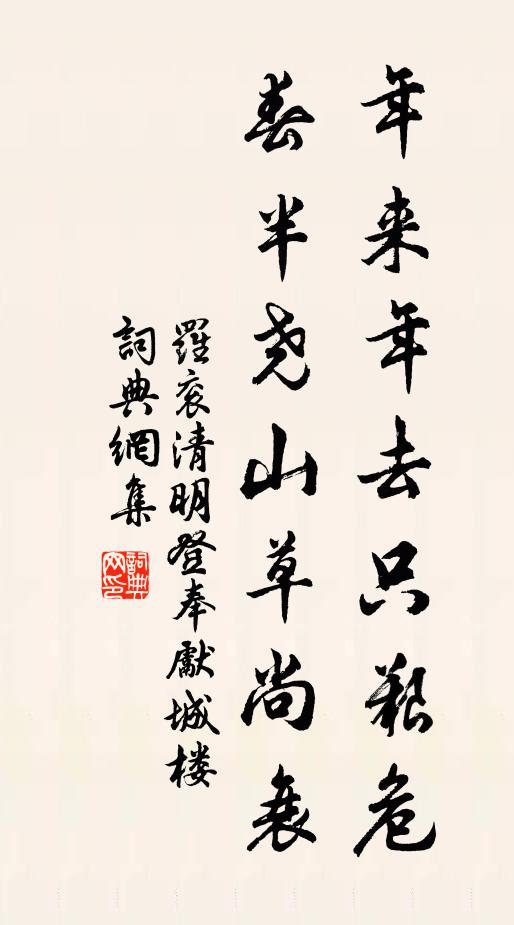 年来年去只艱危
春半尧山草尚衰
羅衮清明登奉獻城楼
詞典網集
詞典网印